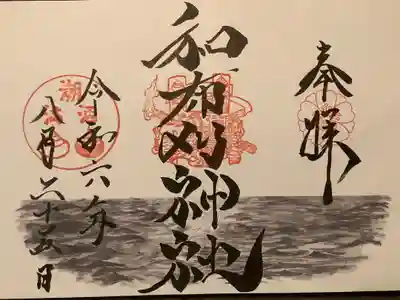 奉拝
和布刈神社
令和六年
八月二十五日